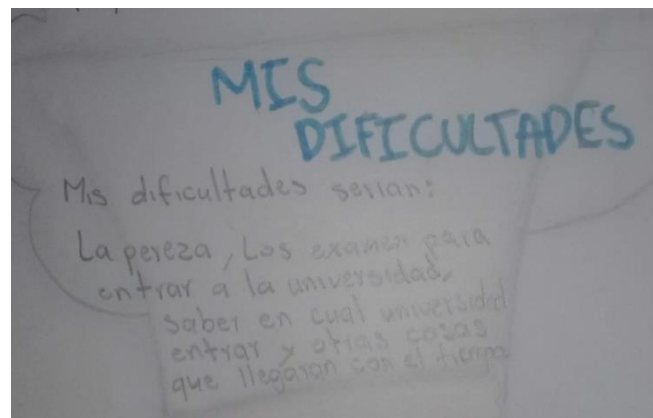 MIS
DIFICULTADES
Mis dificultades serian:
La pereza, Los examen para
entrar a la universidad,
saber en cual universidad
entrar y otras cosas
que llegaron con el tiempo